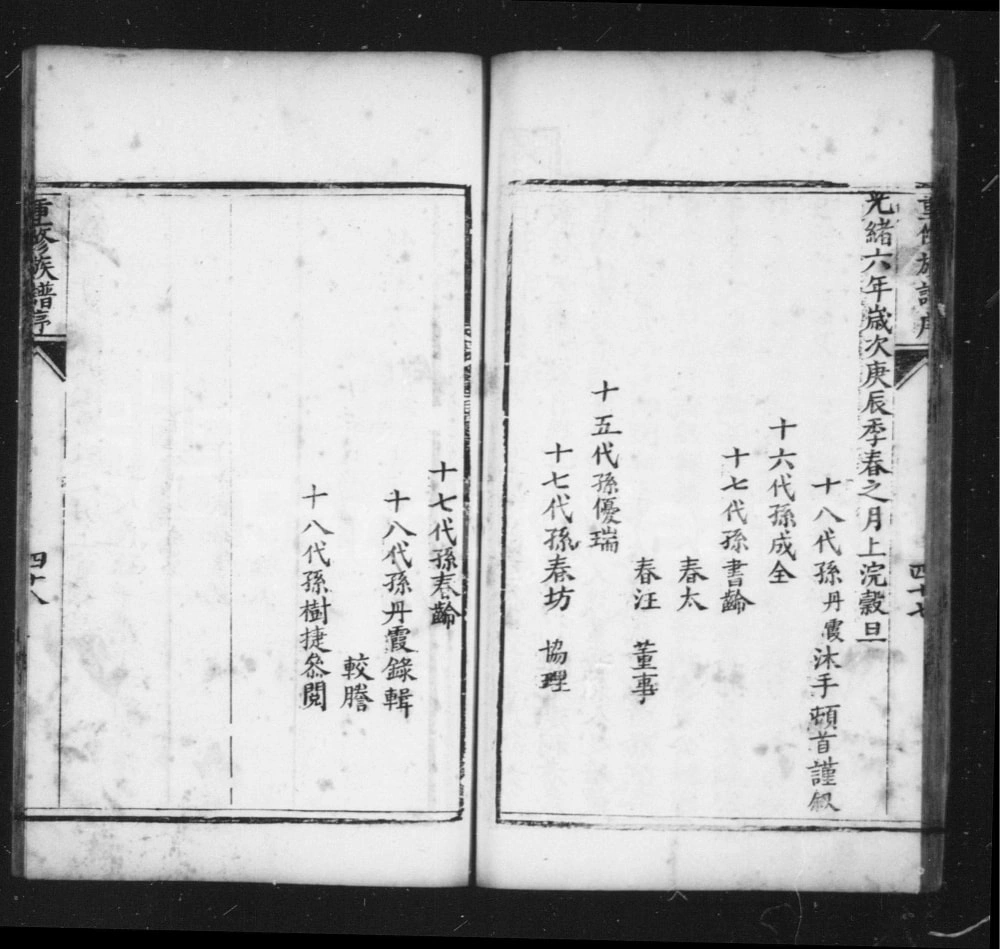 重修族譜序
四十七
光緒六年歲次庚辰季春之月上浣穀旦
十八代孫丹霞沐手頓首謹叙
十六代孫成全
十七代孫書齡
春太
春汪 董事
十五代孫優瑞
十七代孫春坊 協理
十七代孫春齡
十八代孫丹霞錄輯
較謄
十八代孫樹捷叅閱
重修族譜序
四十八